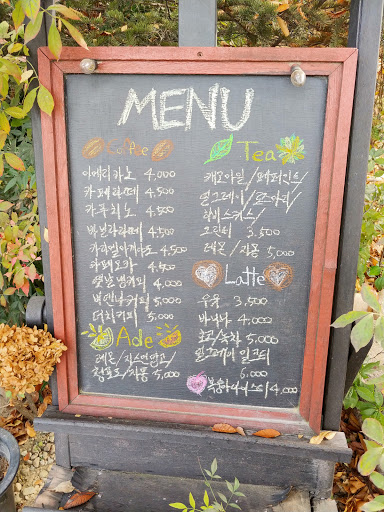 MENU
Coffee
아메리카노 4,000
카페라떼 4,500
카푸치노 4,500
바닐라라떼 4,500
카라멜마끼아또 4,500
카페모카 4,500
옛날냉커피 4,000
비엔나커피 5,000
더치커피 5,000
Ade
레몬/자몽
청포도/자몽 5,000
Tea
캐모마일/페퍼민트/
얼그레이/
히비스커스/
그린티 3,500
레몬/자몽 5,000
Latte
우유 3,500
바나나 4,000
초코/녹차 5,000
얼그레이 밀크티
6,000
복숭아아이스티 4,000